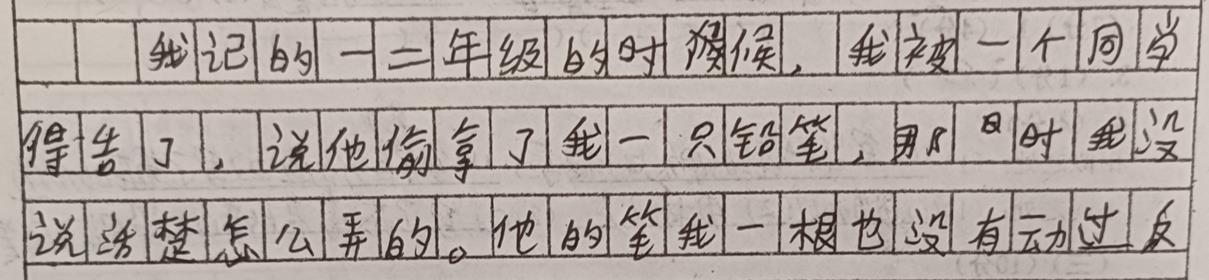 我记的一二年级的时候候，我被一个同学
得告了，说他偷拿了我一只铅笔，那日时我没
说法楚怎么弄的。他的笔我一根也没有动过反